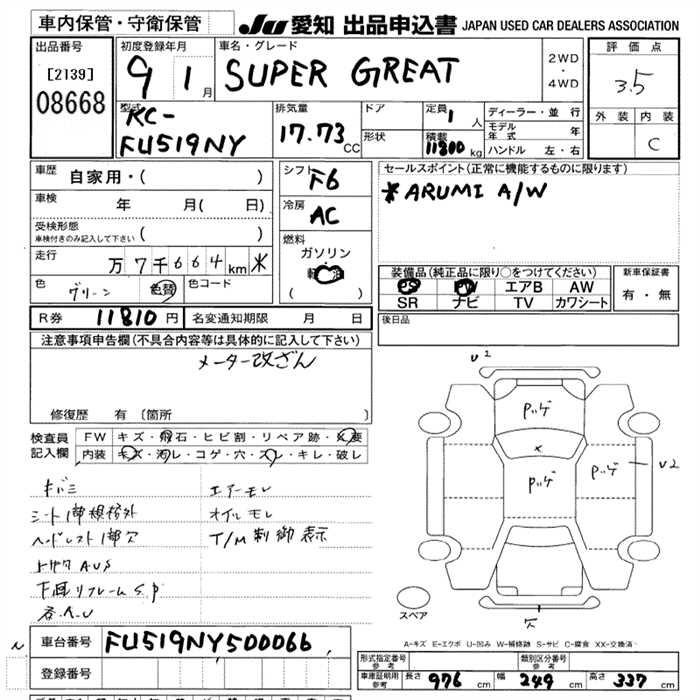 車内保管・守衛保管
JU 愛知 出品申込書 JAPAN USED CAR DEALERS ASSOCIATION
出品番号
[2139]
08668
初度登録年月
9 1 月
車名・グレード
SUPER GREAT
2WD
・
4WD
評価点
3.5
外装 内装
C
型式
KC-
FU519NY
排気量
17.73 CC
ドア
形状
定員 1 人
積載
11800 kg
ディーラー・並行
モデル年式 年
ハンドル 左・右
車歴
自家用・( )
車検
年 月( 日)
受検形態
車検付きのみ記入して下さい ( )
走行
万 7 千 6 6 4 km
色
グリーン 色替
色コード
シフト
F6
冷房
AC
燃料
ガソリン
( )
セールスポイント(正常に機能するものに限ります)
* ARUMI A/W
装備品(純正品に限り○をつけてください)
PS PW エアB AW
SR ナビ TV カワシート
新車保証書
有・無
R券 11810 円
名変通知期限 月 日
後日品
注意事項申告欄(不具合内容等は具体的に記入して下さい)
メーター改ざん
修復歴 有 (箇所 )
検査員
記入欄
FW キズ・飛石・ヒビ割・リペア跡・X要
内装 キズ・汚レ・コゲ・穴・スレ・キレ・破レ
キバミ
シート1部規格外
ヘッドレスト1部欠
下回リフレームS.P
エアーモレ
オイルモレ
T/M 制御表示
U2
Pッゲ
X
Pッゲ
Pッゲ
U2
スペア
A-キズ E-エクボ U-凹み W-補修跡 S-サビ C-腐食 XX-交換済
車台番号 FU519NY500066
登録番号
形式指定番号
参考
類別区分番号
参考
車庫証明用
参考
長さ 976 cm 幅 249 cm 高さ 337 cm